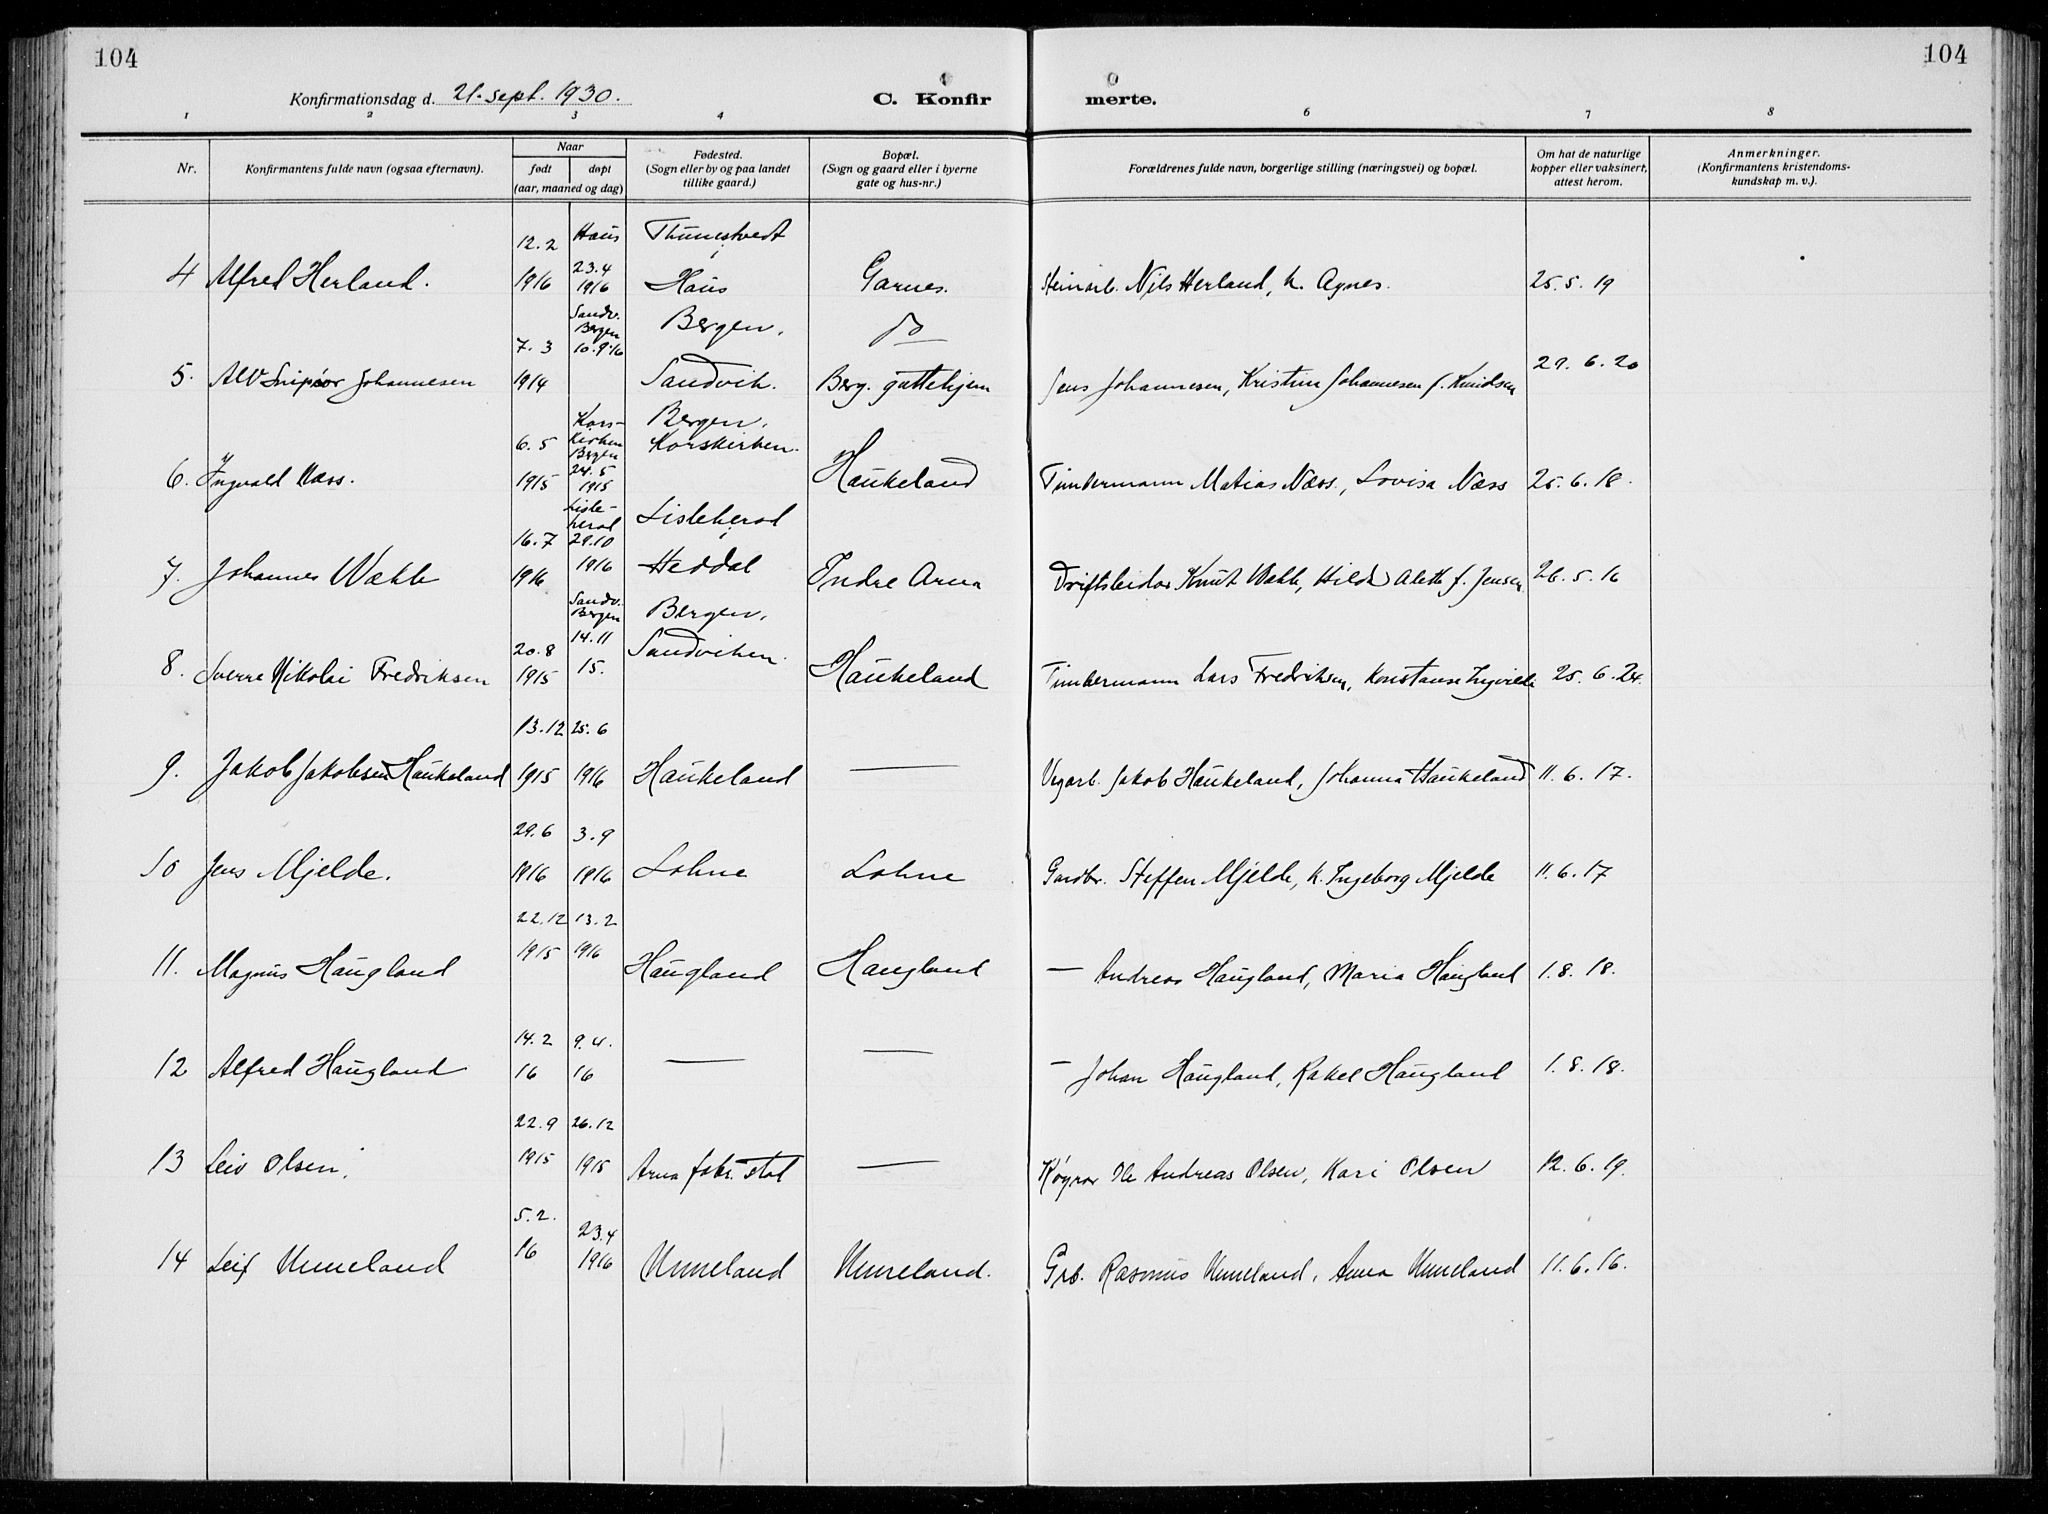 104
104
Konfirmationsdag d. 21. sept. 1930.
C. Konfirmerte.
1 2 3 4 5 6 7 8
Nr.
Konfirmantens fulde navn (ogsaa efternavn).
Naar
født
døpt
(aar, maaned og dag)
Fødested.
(Sogn eller by og paa landet
tillike gaard.)
Bopæl.
(Sogn og gaard eller i byerne
gate og hus-nr.)
Forældrenes fulde navn, borgerlige stilling (næringsvei) og bopæl.
Om hat de naturlige
kopper eller vaksinert,
attest herom.
Anmerkninger.
(Konfirmantens kristendoms-
kundskap m. v.).
4 Alfred Herland. 12.2 1916 Haus 23.4 1916 Thunestvedt i Haus Garnes. Steinarb. Nils Herland, k. Agnes. 25.5.19
5. Johannesen 7.3 1914 Sandv. Bergen 10.9.16 Bergen, Sandvik. do Berg. guttehjem Jens Johannesen, Kristine Johannesen f. Knudsen 29.6.20
6. Ingvald Næss. 6.5 1915 Kors-kirken Bergen 24.5 1915 Bergen, Korskirken. Haukeland Timbermann Matias Næss, Lovisa Næss 25.6.18.
7. Johannes Wækle 16.7 1916 Lisleherad 29.10 1916 Lisleherad i Heddal Indre Arna Driftsleidar Knut Wækle, Hilda Aleth f. Jensen 26.5.16
8. Sverre Nikolai Fredriksen 20.8 1915 Sandv. Bergen 14.11 15. Bergen, Sandviken. Haukeland Timbermann Lars Fredriksen, Konstanse Ingvilda 25.6.24.
9. Jakob Jakobsen Haukeland 13.12 1915 25.6 1916 Haukeland — Vegarb. Jakob Haukeland, Johanna Haukeland 11.6.17.
10 Jens Mjelde. 29.6 1916 3.9 1916 Lohne Lohne Gardbr. Steffen Mjelde, k. Ingeborg Mjelde 11.6.17
11. Magnus Haugland 22.12 1915 13.2 1916 Haugland Haugland — Andreas Haugland, Maria Haugland 1.8.18.
12 Alfred Haugland 14.2 16 9.4. 16 — — — Johan Haugland, Rakel Haugland 1.8.18.
13 Leiv Olsen. 22.9 1915 26.12 1915 Arna fabr. stol — Køyrar Ole Andreas Olsen, Kari Olsen 12.6.19.
14 Leif Unneland 5.2. 16 23.4 1916 Unneland Unneland. Grb. Rasmus Unneland, Anna Unneland 11.6.16.